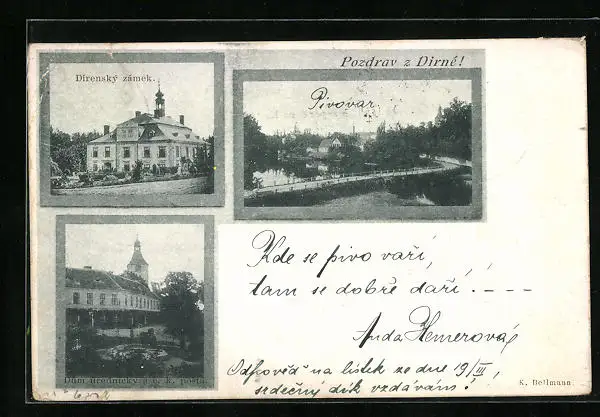 Pozdrav z Dirné!
Dírenský zámek.
Pivovar.
Kde se pivo vaří,
tam se dobře daří. - - - -
Anda Hemerová
Odpověď na lístek ze dne 19/III,
srdečný dík vzdávám!
Dům úřednický a c. k. pošta.
K. Bellmann